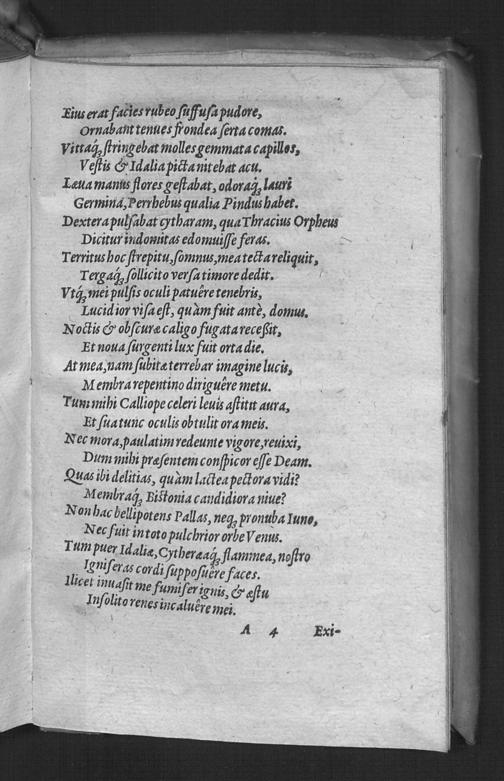 Eius erat facies rubeo ſuffuſa pudore,
Ornabant tenues frondea ſerta comas.
Vittaq́; ſtringebat molles gemmata capillos,
Veſtis & Idalia picta nitebat acu.
Læua manus flores geſtabat, odoraq́; lauri
Germina, Perrhebus qualia Pindus habet.
Dextera pulſabat cytharam, qua Thracius Orpheus
Dicitur indomitas edomuiſſe feras.
Territus hoc ſtrepitu, ſomnus, mea tecta reliquit,
Tergaq́; ſollicito verſa timore dedit.
Vtq́; mei pulſis oculi patuêre tenebris,
Lucidior viſa eſt, quàm fuit antè, domus.
Noctis & obſcuræ caligo fugata receßit,
Et noua ſurgenti lux fuit orta die.
At mea, nam ſubitæ terrebar imagine lucis,
Membra repentino diriguêre metu.
Tum mihi Calliope celeri leuis aſtitit aura,
Et ſua tunc oculis obtulit ora meis.
Nec mora, paulatim redeunte vigore, reuixi,
Dum mihi præſentem conſpicor eſſe Deam.
Quas ibi delitias, quàm lactea pectora vidi?
Membraq́; Biſtonia candidiora niue?
Non hac bellipotens Pallas, neq; pronuba Iuno,
Nec fuit in toto pulchrior orbe Venus.
Tum puer Idaliæ, Cythereæq́; flammea, noſtro
Igniferas cordi ſuppoſuêre faces.
Ilicet inuaſit me fumifer ignis, & æſtu
Inſolito renes incaluêre mei.
A 4 Exi-